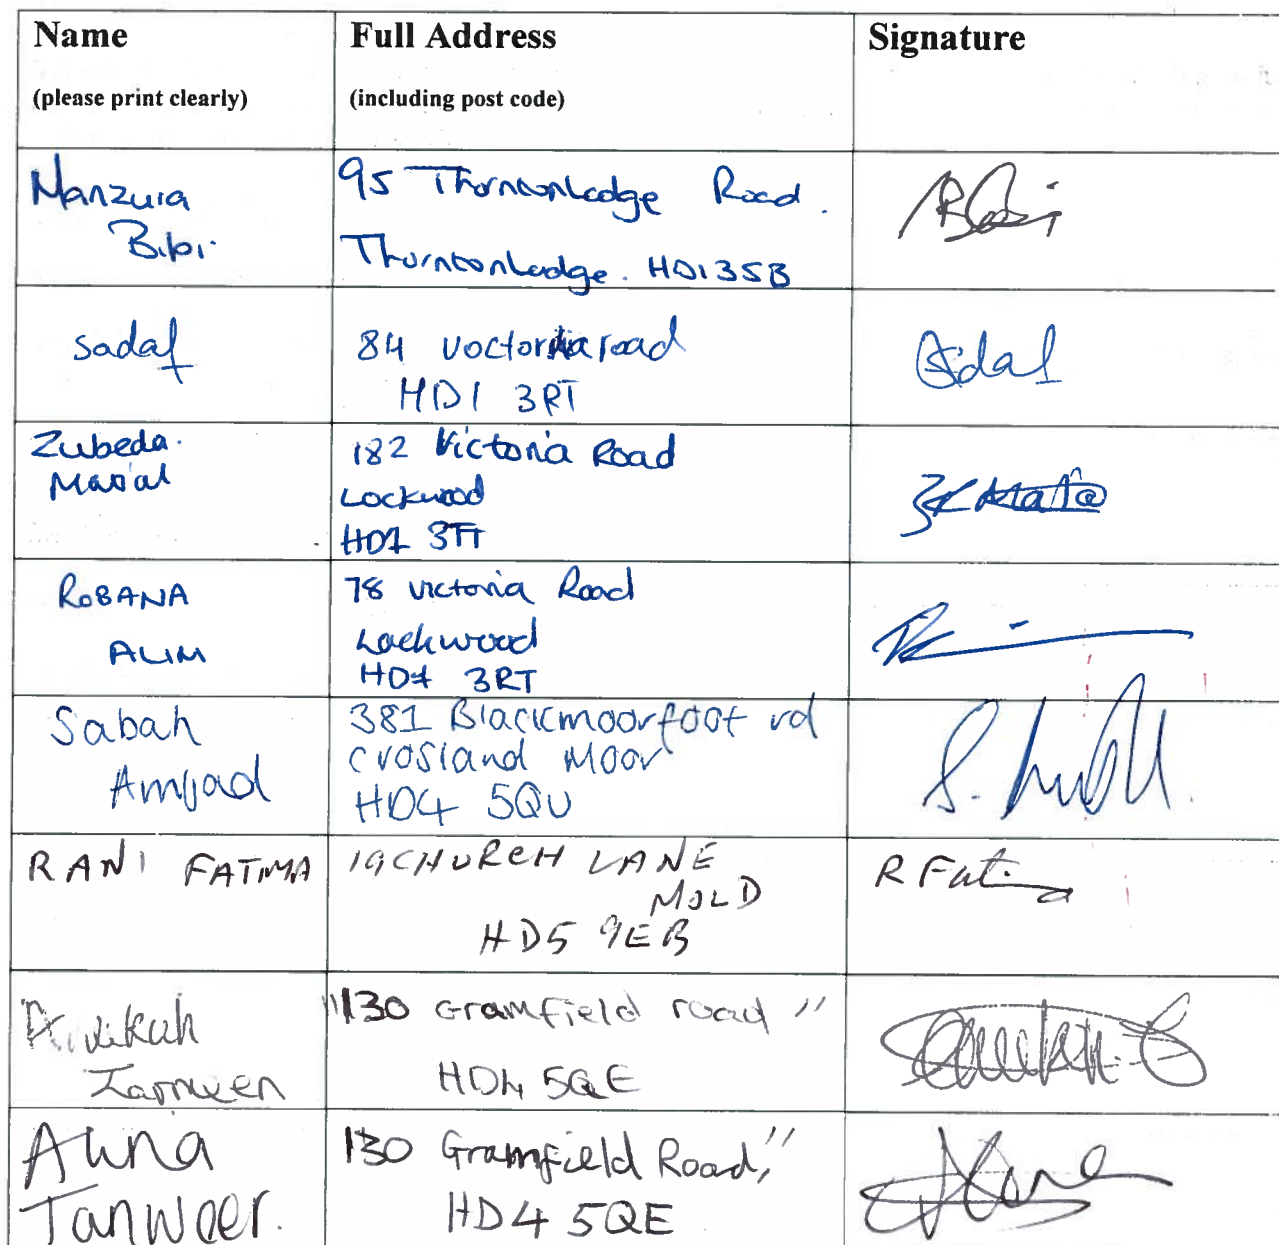 Name
Full Address
Signature
(please print clearly)
(including post code)
Manzura
Bibi.
95 Thorntonlodge Road.
Thorntonlodge. HD1 3SB
Sadaf
84 Voctoria road
HD1 3RT
Sadaf
Zubeda.
182 Victoria Road
Lockwood
HD1 3TT
ROBANA
ALIM
78 Victoria Road
Lockwood
HD1 3RT
Sabah
Amjad
381 Blackmoorfoot rd
Crosland Moor
HD4 5QU
RANI FATIMA
19 CHURCH LANE
MOLD
HD5 9EB
R Fatima
"130 Gramfield road"
HD4 5QE
Tanweer
Alina
Tanweer.
130 Gramfield Road,"
HD4 5QE